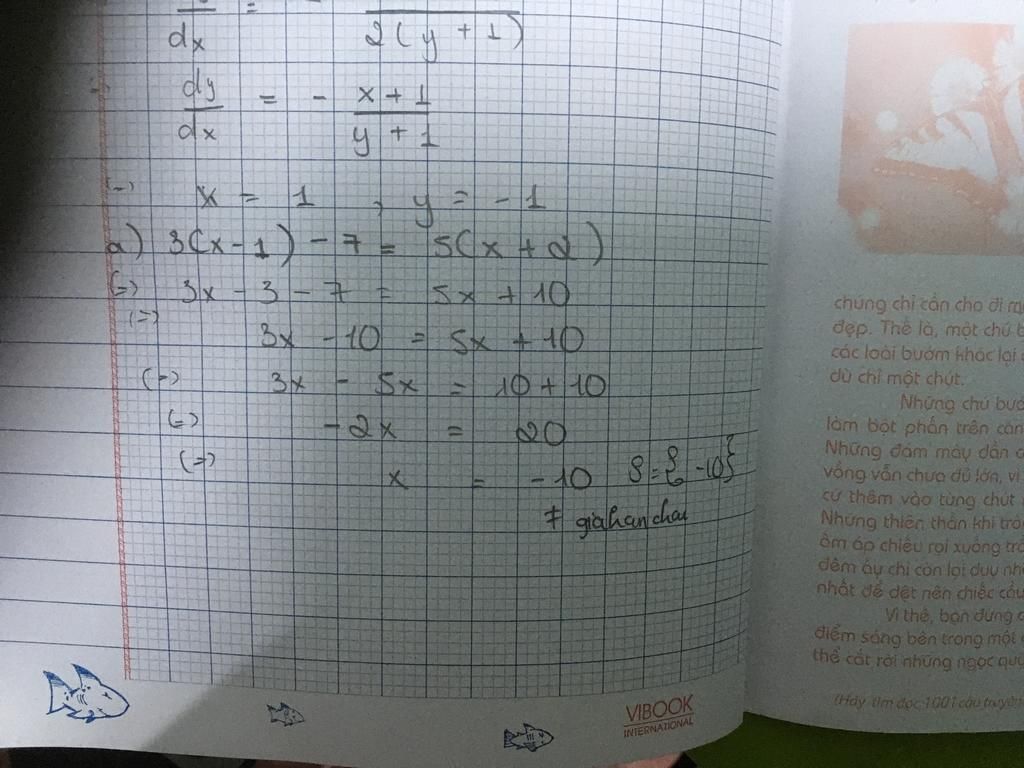 dy/dx = - /2(y + 1)
dy/dx = - x+1/y+1
(=) x = 1 , y = -1
a) 3(x-1) - 7 = 5(x + 2)
(=) 3x - 3 - 7 = 5x + 10
(=) 3x - 10 = 5x + 10
(=) 3x - 5x = 10 + 10
(=) -2x = 20
(=) x = -10 S = { -10}
VIBOOK
INTERNATIONAL
chúng chỉ cần cho đi
đẹp. Thế là, một chú
các loài bướm khác lại
dù chỉ một chút.
Những chú
làm bột phấn trên
Những đám mây dần
vồng vẫn chưa đủ lớn, vì
cứ thêm vào từng chút
Những thiên thần khi
ấm áp chiếu rọi xuống
đêm ấy chỉ còn lại duy
nhất để dệt nên chiếc
Vì thế, bạn đừng
điểm sáng bên trong một
thể cắt rời những ngọc
(Hãy tìm đọc 1001 câu